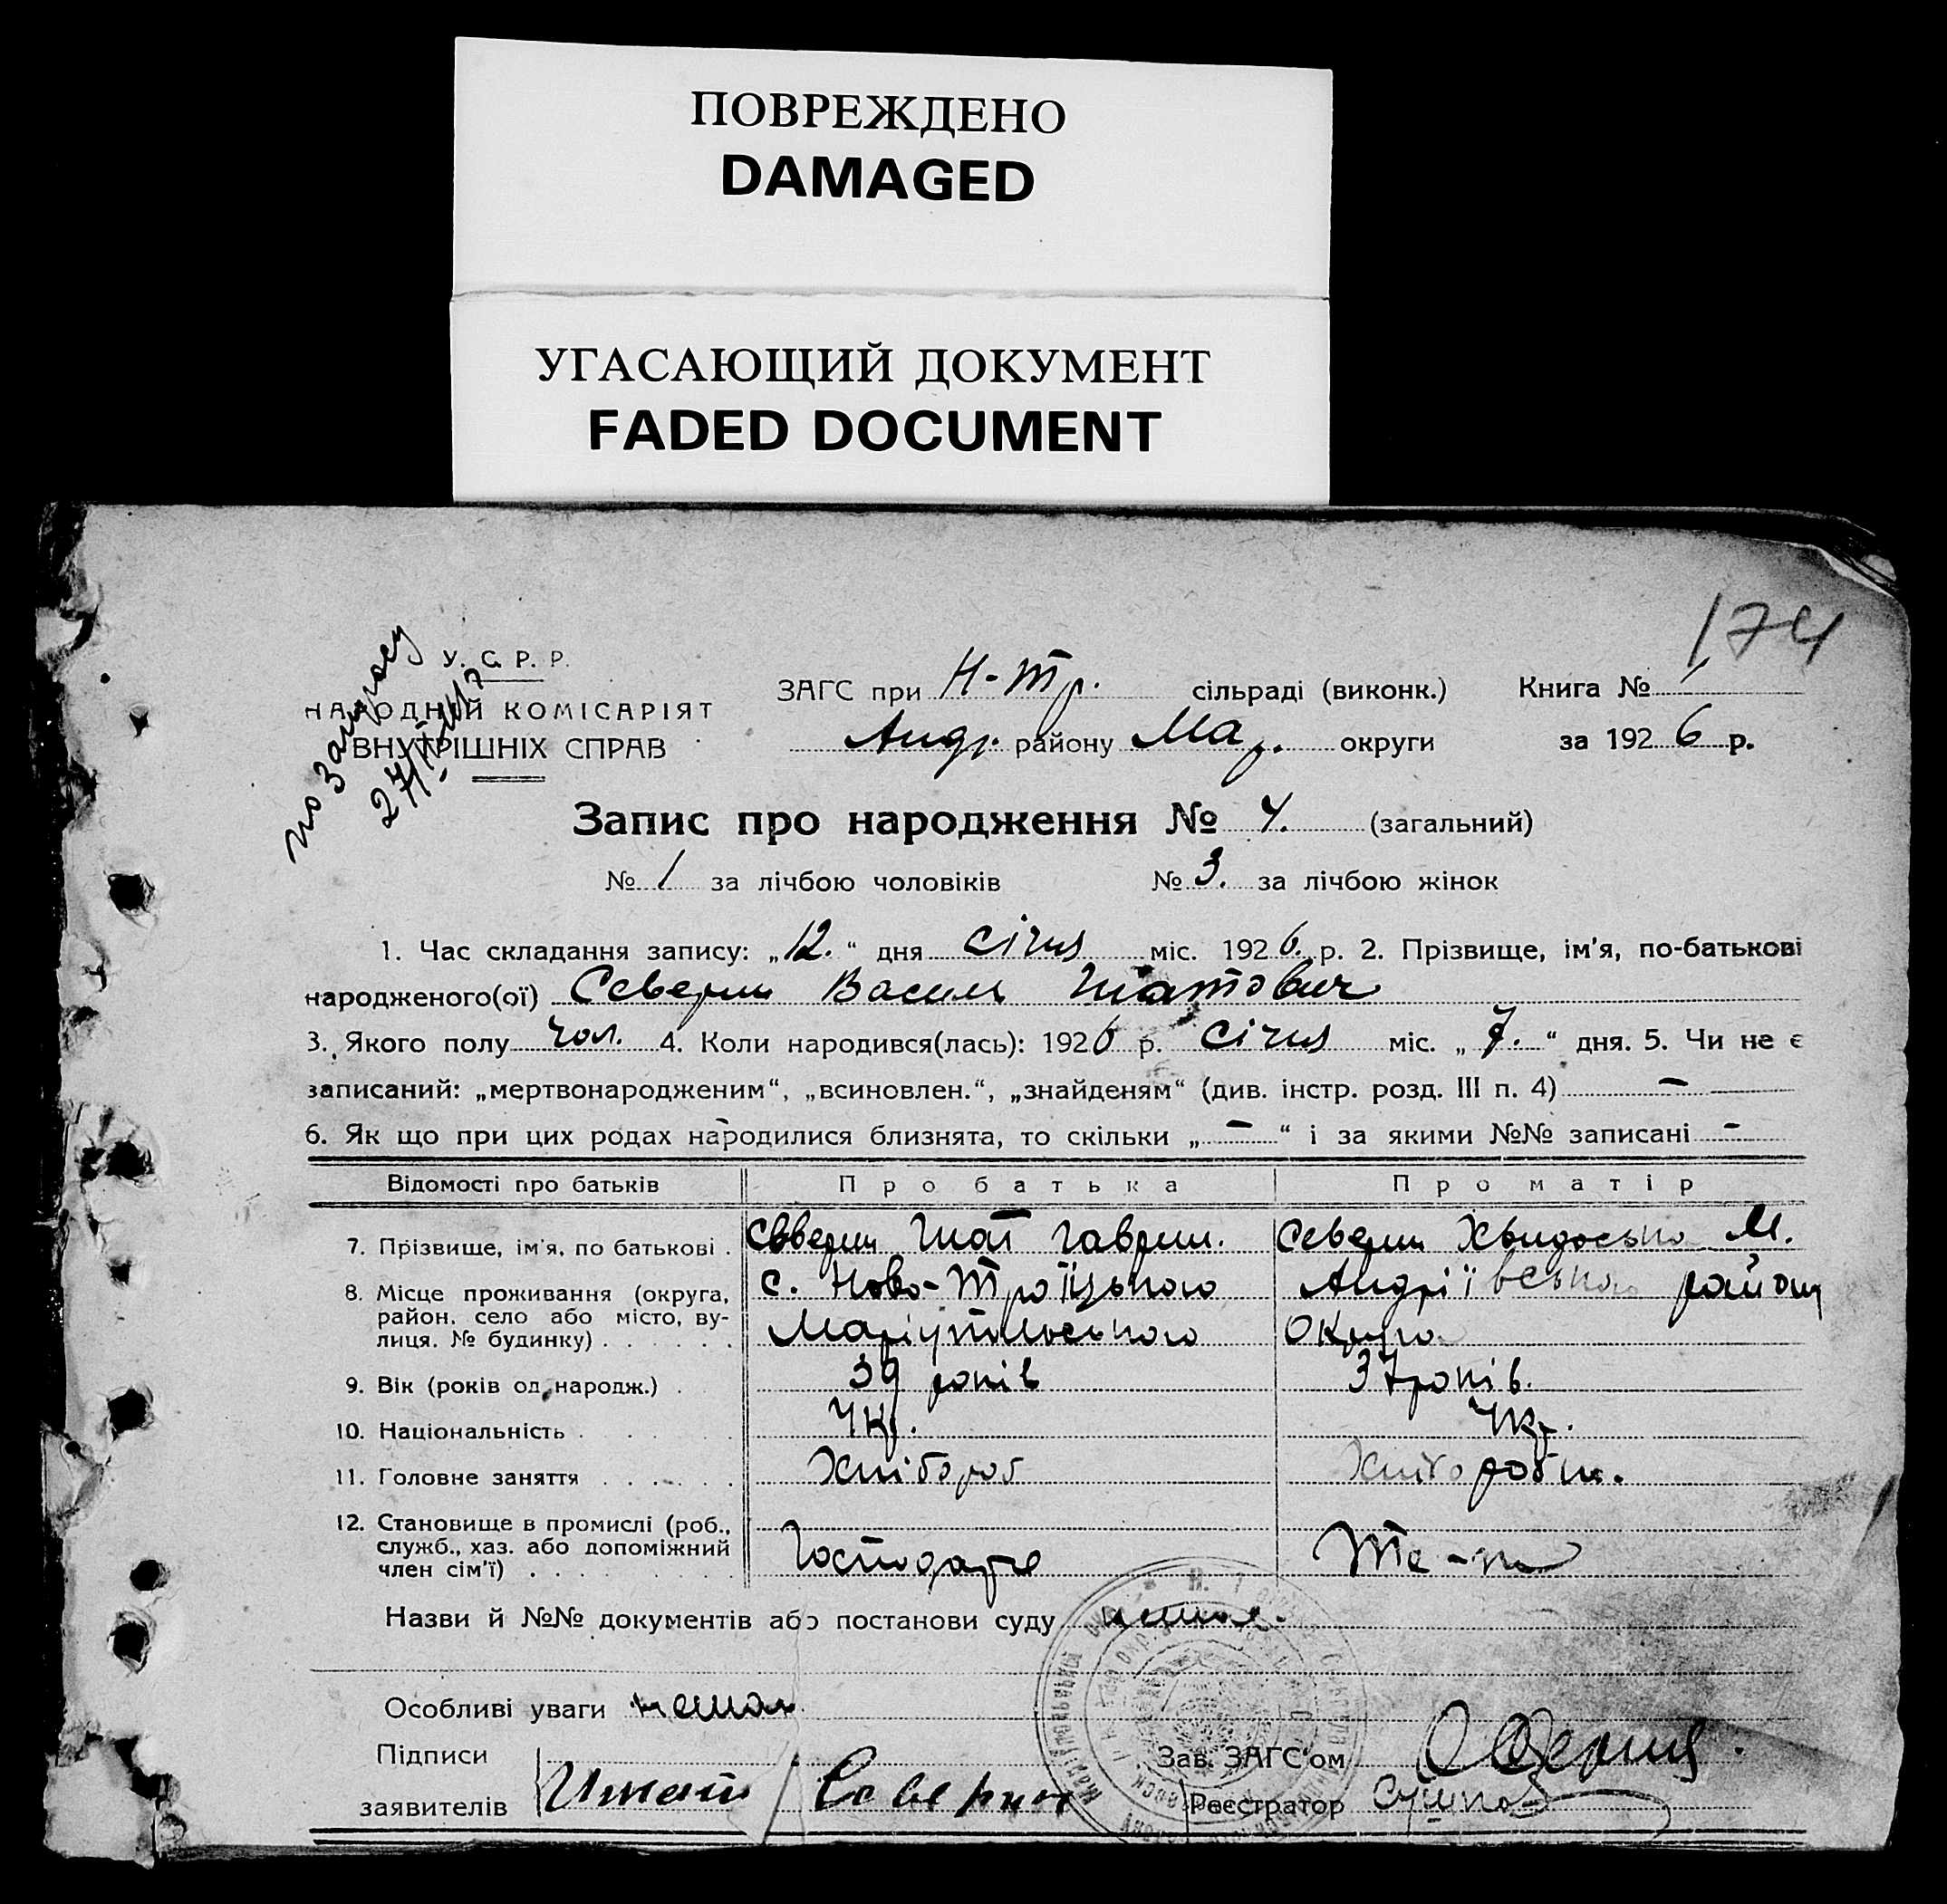 ПОВРЕЖДЕНО
DAMAGED
УГАСАЮЩИЙ ДОКУМЕНТ
FADED DOCUMENT
174
по запросу
У. С. Р. Р.
НАРОДНІЙ КОМІСАРІЯТ
ВНУТРІШНІХ СПРАВ
ЗАГС при Н-Тр. сільраді (виконк.) Книга №
Андр. району Мар. округи за 1926 р.
Запис про народження № 4. (загальний)
№ 1 за лічбою чоловіків № 3. за лічбою жінок
1. Час складання запису: „12.“ дня січня міс. 1926. р. 2. Прізвище, ім'я, по-батькові
народженого(ої) Северин Василь Гнатович
3. Якого полу чол. 4. Коли народився(лась): 1926 р. січня міс. „7.“ дня. 5. Чи не є
записаний: „мертвонародженим“, „всиновлен.“, „знайденям“ (див. інстр. розд. III п. 4) —
6. Як що при цих родах народилися близнята, то скільки „—“ і за якими №№ записані -
Відомості про батьків Про батька Про матір
7. Прізвище, ім'я, по батькові . Северин Гнат Гаврил. Северин М.
8. Місце проживання (округа, район, село або місто, вулиця, № будинку) . . . . . . с. Ново-Троїцького Андріївського району
Маріупольського Округа
9. Вік (років од народж.) . 39 років 37 років.
10. Національність . . . . . . Укр. Укр.
11. Головне заняття . . . . . . Хлібороб Хлібороби.
12. Становище в промислі (роб., служб., хаз. або допоміжний член сім'ї) . . . . . . . . Господарує Те-ж
Назви й №№ документів або постанови суду немає.
Особливі уваги немає
Підписи
заявителів Игнат Северин
Зав. ЗАГС'ом
Реєстратор